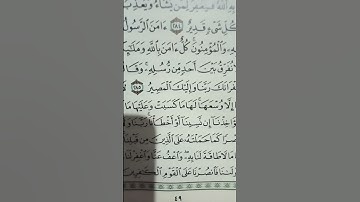 كُلِّ شَىْءٍ قَدِيرٌ ٢٨٤ ءَامَنَ ٱلرَّسُولُ
وَٱلْمُؤْمِنُونَ كُلٌّ ءَامَنَ بِٱللَّهِ وَمَلَٰٓئِكَتِهِۦ
نُفَرِّقُ بَيْنَ أَحَدٍ مِّن رُّسُلِهِۦ وَقَالُوا۟
رَبَّنَا وَإِلَيْكَ ٱلْمَصِيرُ ٢٨٥
إِلَّا وُسْعَهَا لَهَا مَا كَسَبَتْ وَعَلَيْهَا مَا
إِن نَّسِينَآ أَوْ أَخْطَأْنَا رَبَّنَا
كَمَا حَمَلْتَهُۥ عَلَى ٱلَّذِينَ مِن قَبْلِنَا
مَا لَا طَاقَةَ لَنَا بِهِۦ وَٱعْفُ عَنَّا وَٱغْفِرْ لَنَا
فَٱنصُرْنَا عَلَى ٱلْقَوْمِ ٱلْكَٰفِرِينَ
٤٩